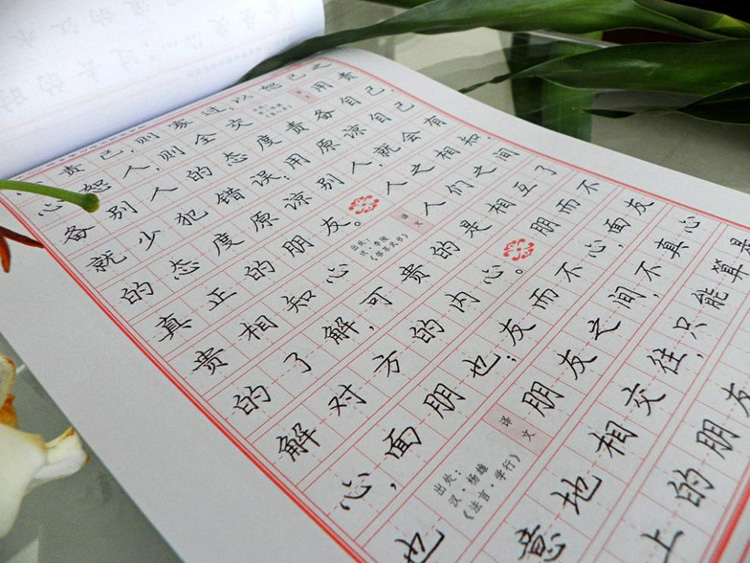 责己,则寡过;以恕己之
心恕人,则全交 译文 用责
备别人的态度责备自己,
就少犯错误;用原谅自己
的态度原谅别人,就会有
真正的朋友。人之相知,
贵相知心 出处:汉·李陵《答苏武书》 译文 人们之间
的了解,可贵的是相互了
解对方的内心。朋而不
心,面朋也;友而不心,面友
也 出处:汉·杨雄《法言·学行》 译文 朋友之间,不真心
意地相交往,只能算是
上的朋友